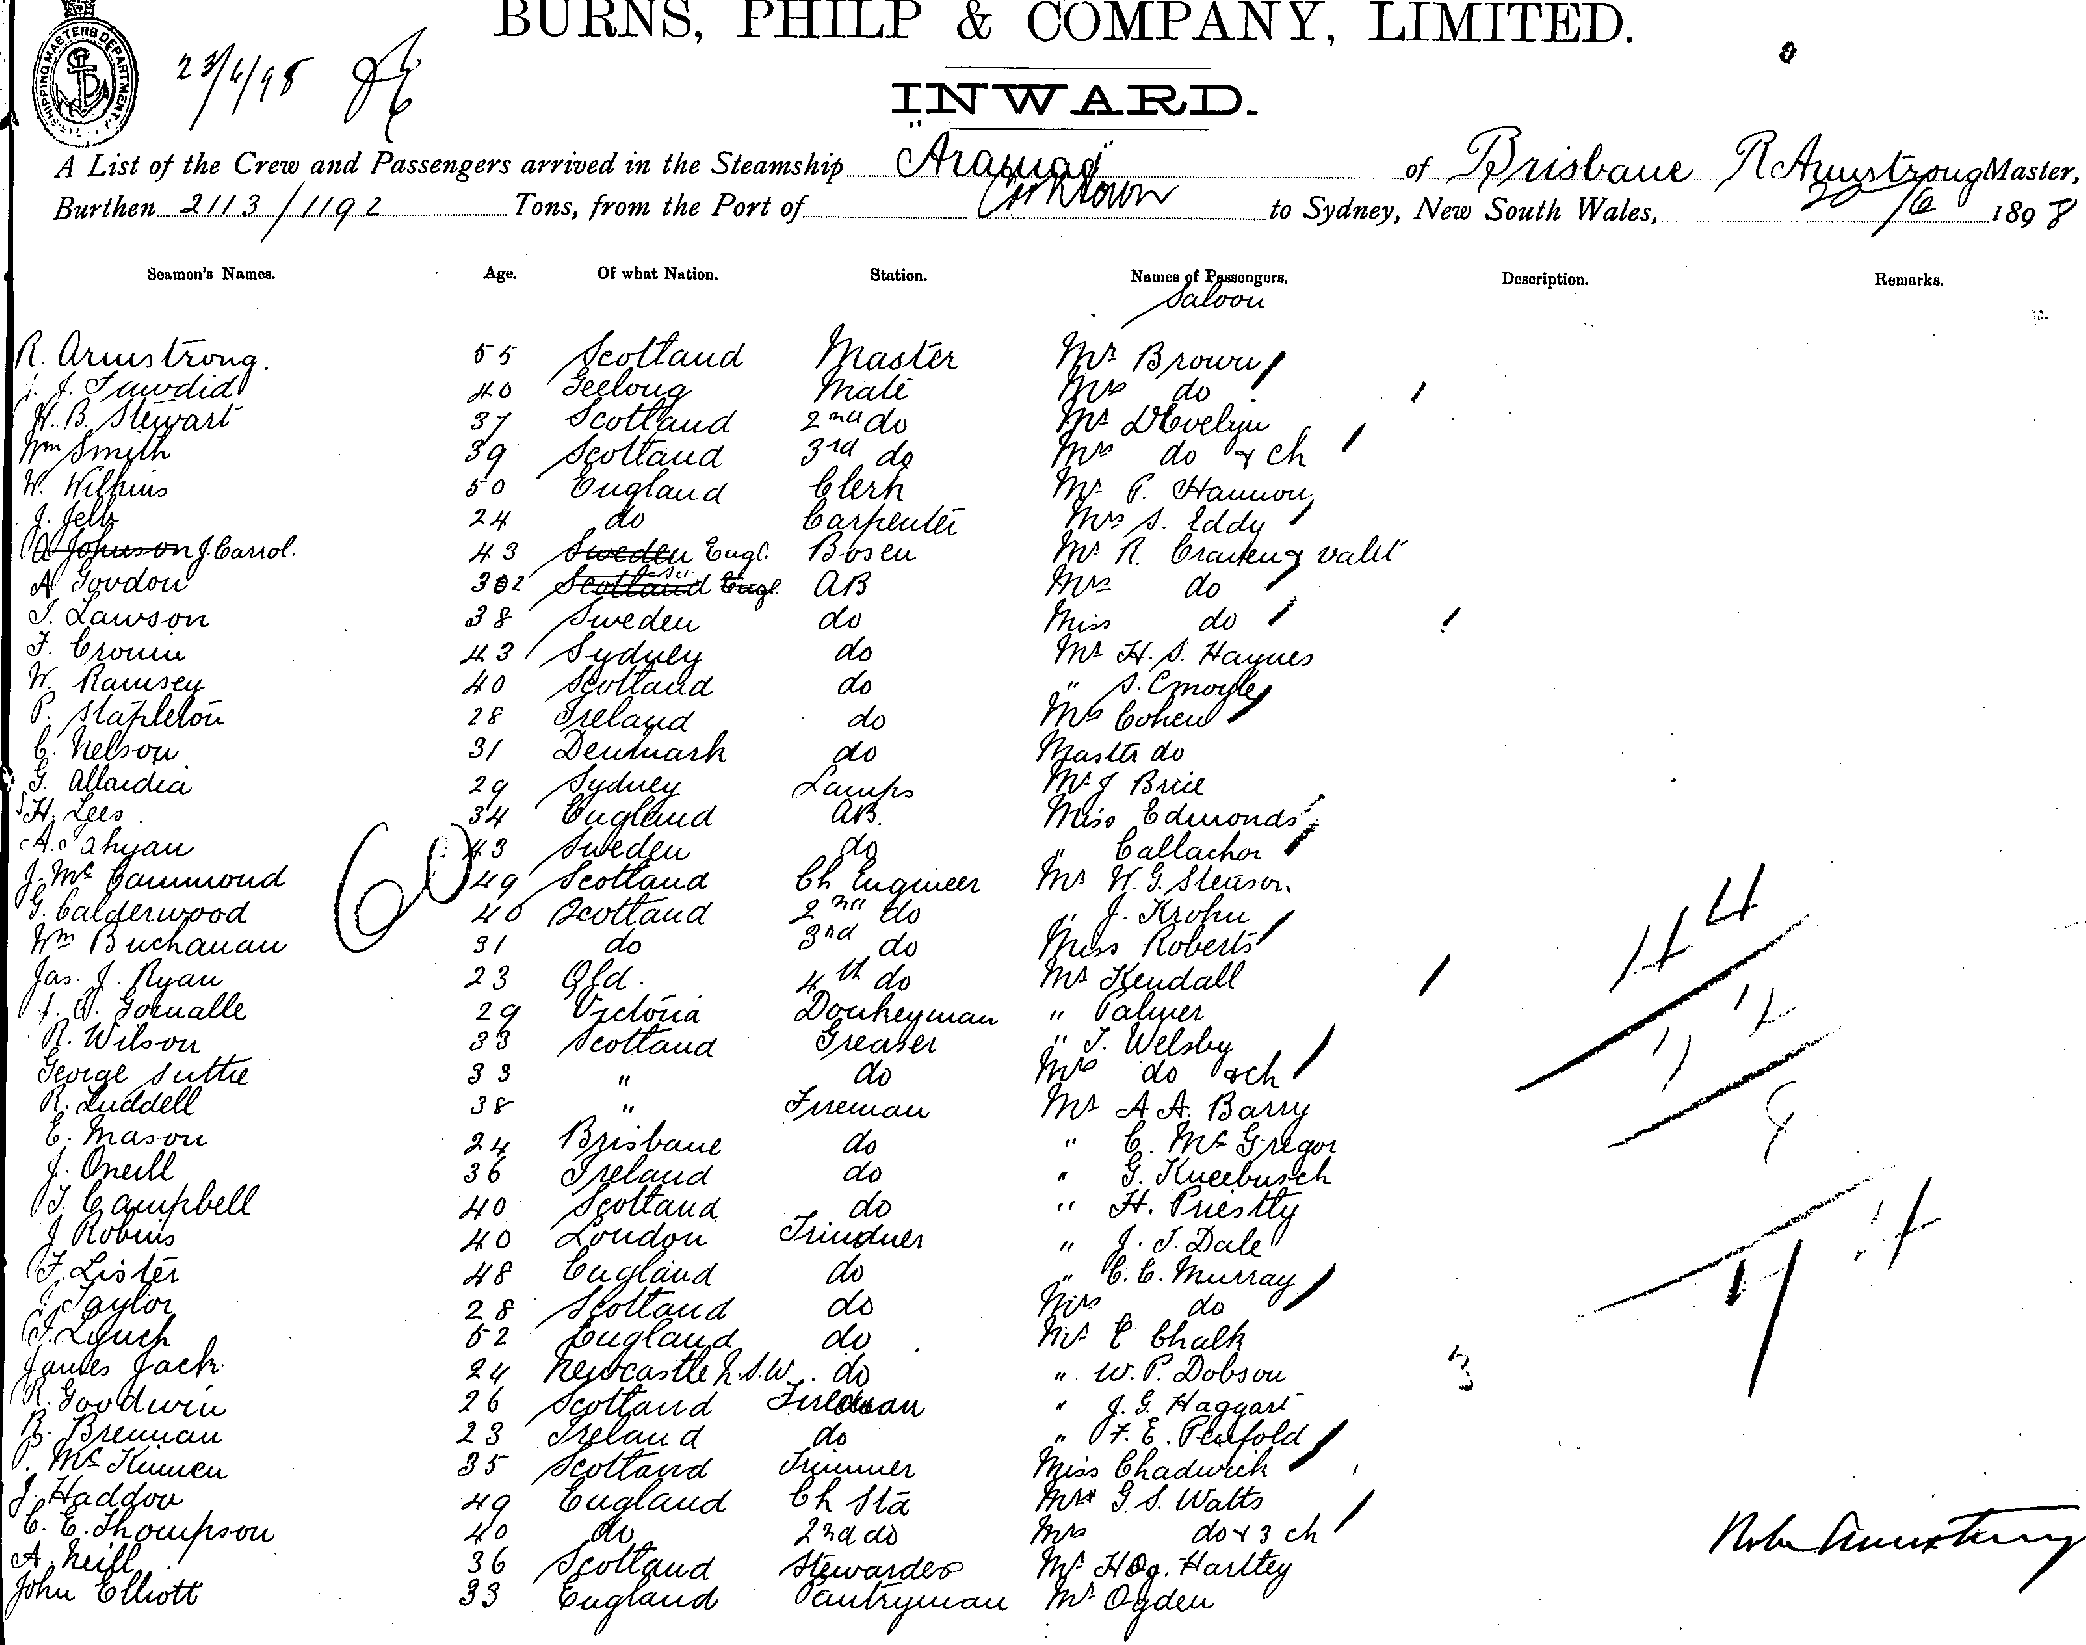 BURNS, PHILP & COMPANY, LIMITED.
SHIPPING MASTERS DEPARTMENT
23/6/98
INWARD.
A List of the Crew and Passengers arrived in the Steamship "Aramac" of Brisbane R Armstrong Master,
Burthen 2113/1192 Tons, from the Port of Cooktown to Sydney, New South Wales, 20/6 1898
Seamen's Names. Age. Of what Nation. Station. Names of Passengers. Description. Remarks.
Saloon
R. Armstrong. 55 Scotland Master Mr Brown
40 Geelong Mate Mrs do
H. B. Stewart 37 Scotland 2nd do Mr DEvelyn
Wm Smyth 39 Scotland 3rd do Mrs do & ch
W. Wilkins 50 England Clerk Mr P. Hannon
J. Jelly 24 do Carpenter Mrs S. Eddy
A Johnson J. Carrol. 43 Sweden Engl. Bosen Mr R. Craven & valet
A Gordon 32 Scotland Engl. AB Mrs do
T. Lawson 38 Sweden do Miss do
F. Cronin 43 Sydney do Mr H. S. Haynes
W. Ramsey 40 Scotland do " S. Emoyle
P. Stapleton 28 Ireland do Mrs Cohen
C. Nelson 31 Denmark do Master do
G. Allardia 29 Sydney Lamps Mr J Brice
H. Lees 34 England AB. Miss Edmonds
43 Sweden do " Callachor
J. Mc Cammond 49 Scotland Ch Engineer Mr W. G. Steason.
G. Calderwood 40 Scotland 2nd do " J. Krohn
60
Wm Buchanan 31 do 3rd do Miss Roberts
Jas. J. Ryan 23 Qld. 4th do Mr Kendall
29 Victoria Donkeyman " Palmer
R. Wilson 33 Scotland Greaser " T. Welsby
George Suttie 33 " do Mrs do & ch
R. Luddell 38 " Fireman Mr A A. Barry
E. Mason 24 Brisbane do " C. Mc Gregor
J. Oneill 36 Ireland do " G. Kneebusch
T. Campbell 40 Scotland do " H. Priestly
J Robins 40 London Trimmer " J. T. Dale
F. Lister 48 England do " C. C. Murray
J Taylor 28 Scotland do Mrs do
T. Lynch 52 England do Mr E Chalk
James Jack 24 Newcastle N.S.W. do " W. P. Dobson
R. Goodwin 26 Scotland Fireman " J. G. Haggart
B. Brennan 23 Ireland do " F. E. Penfold
P. Mc Kinnen 35 Scotland Trimmer Miss Chadwick
J. Haddon 49 England Ch Std Mr G. S. Watts
C. E. Thompson 40 do 2nd do Mrs do & 3 ch
A. Neill 36 Scotland Stewardess Mr H Og. Hartley
John Elliott 33 England Pantryman Mr Ogden
44
14
11
9
3
14
11
Robt Armstrong